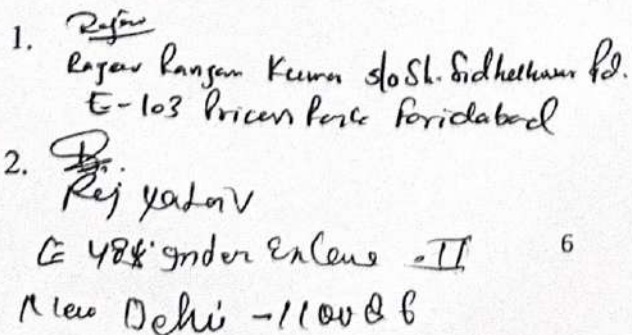 1. Rajeev
Rajeev Ranjan Kumar s/o Sh. Sidheshwar Pd.
E-103 Princes Park Faridabad
2.
Raj Yadav
C 484 Inder Enclave - II
6
New Delhi - 110086